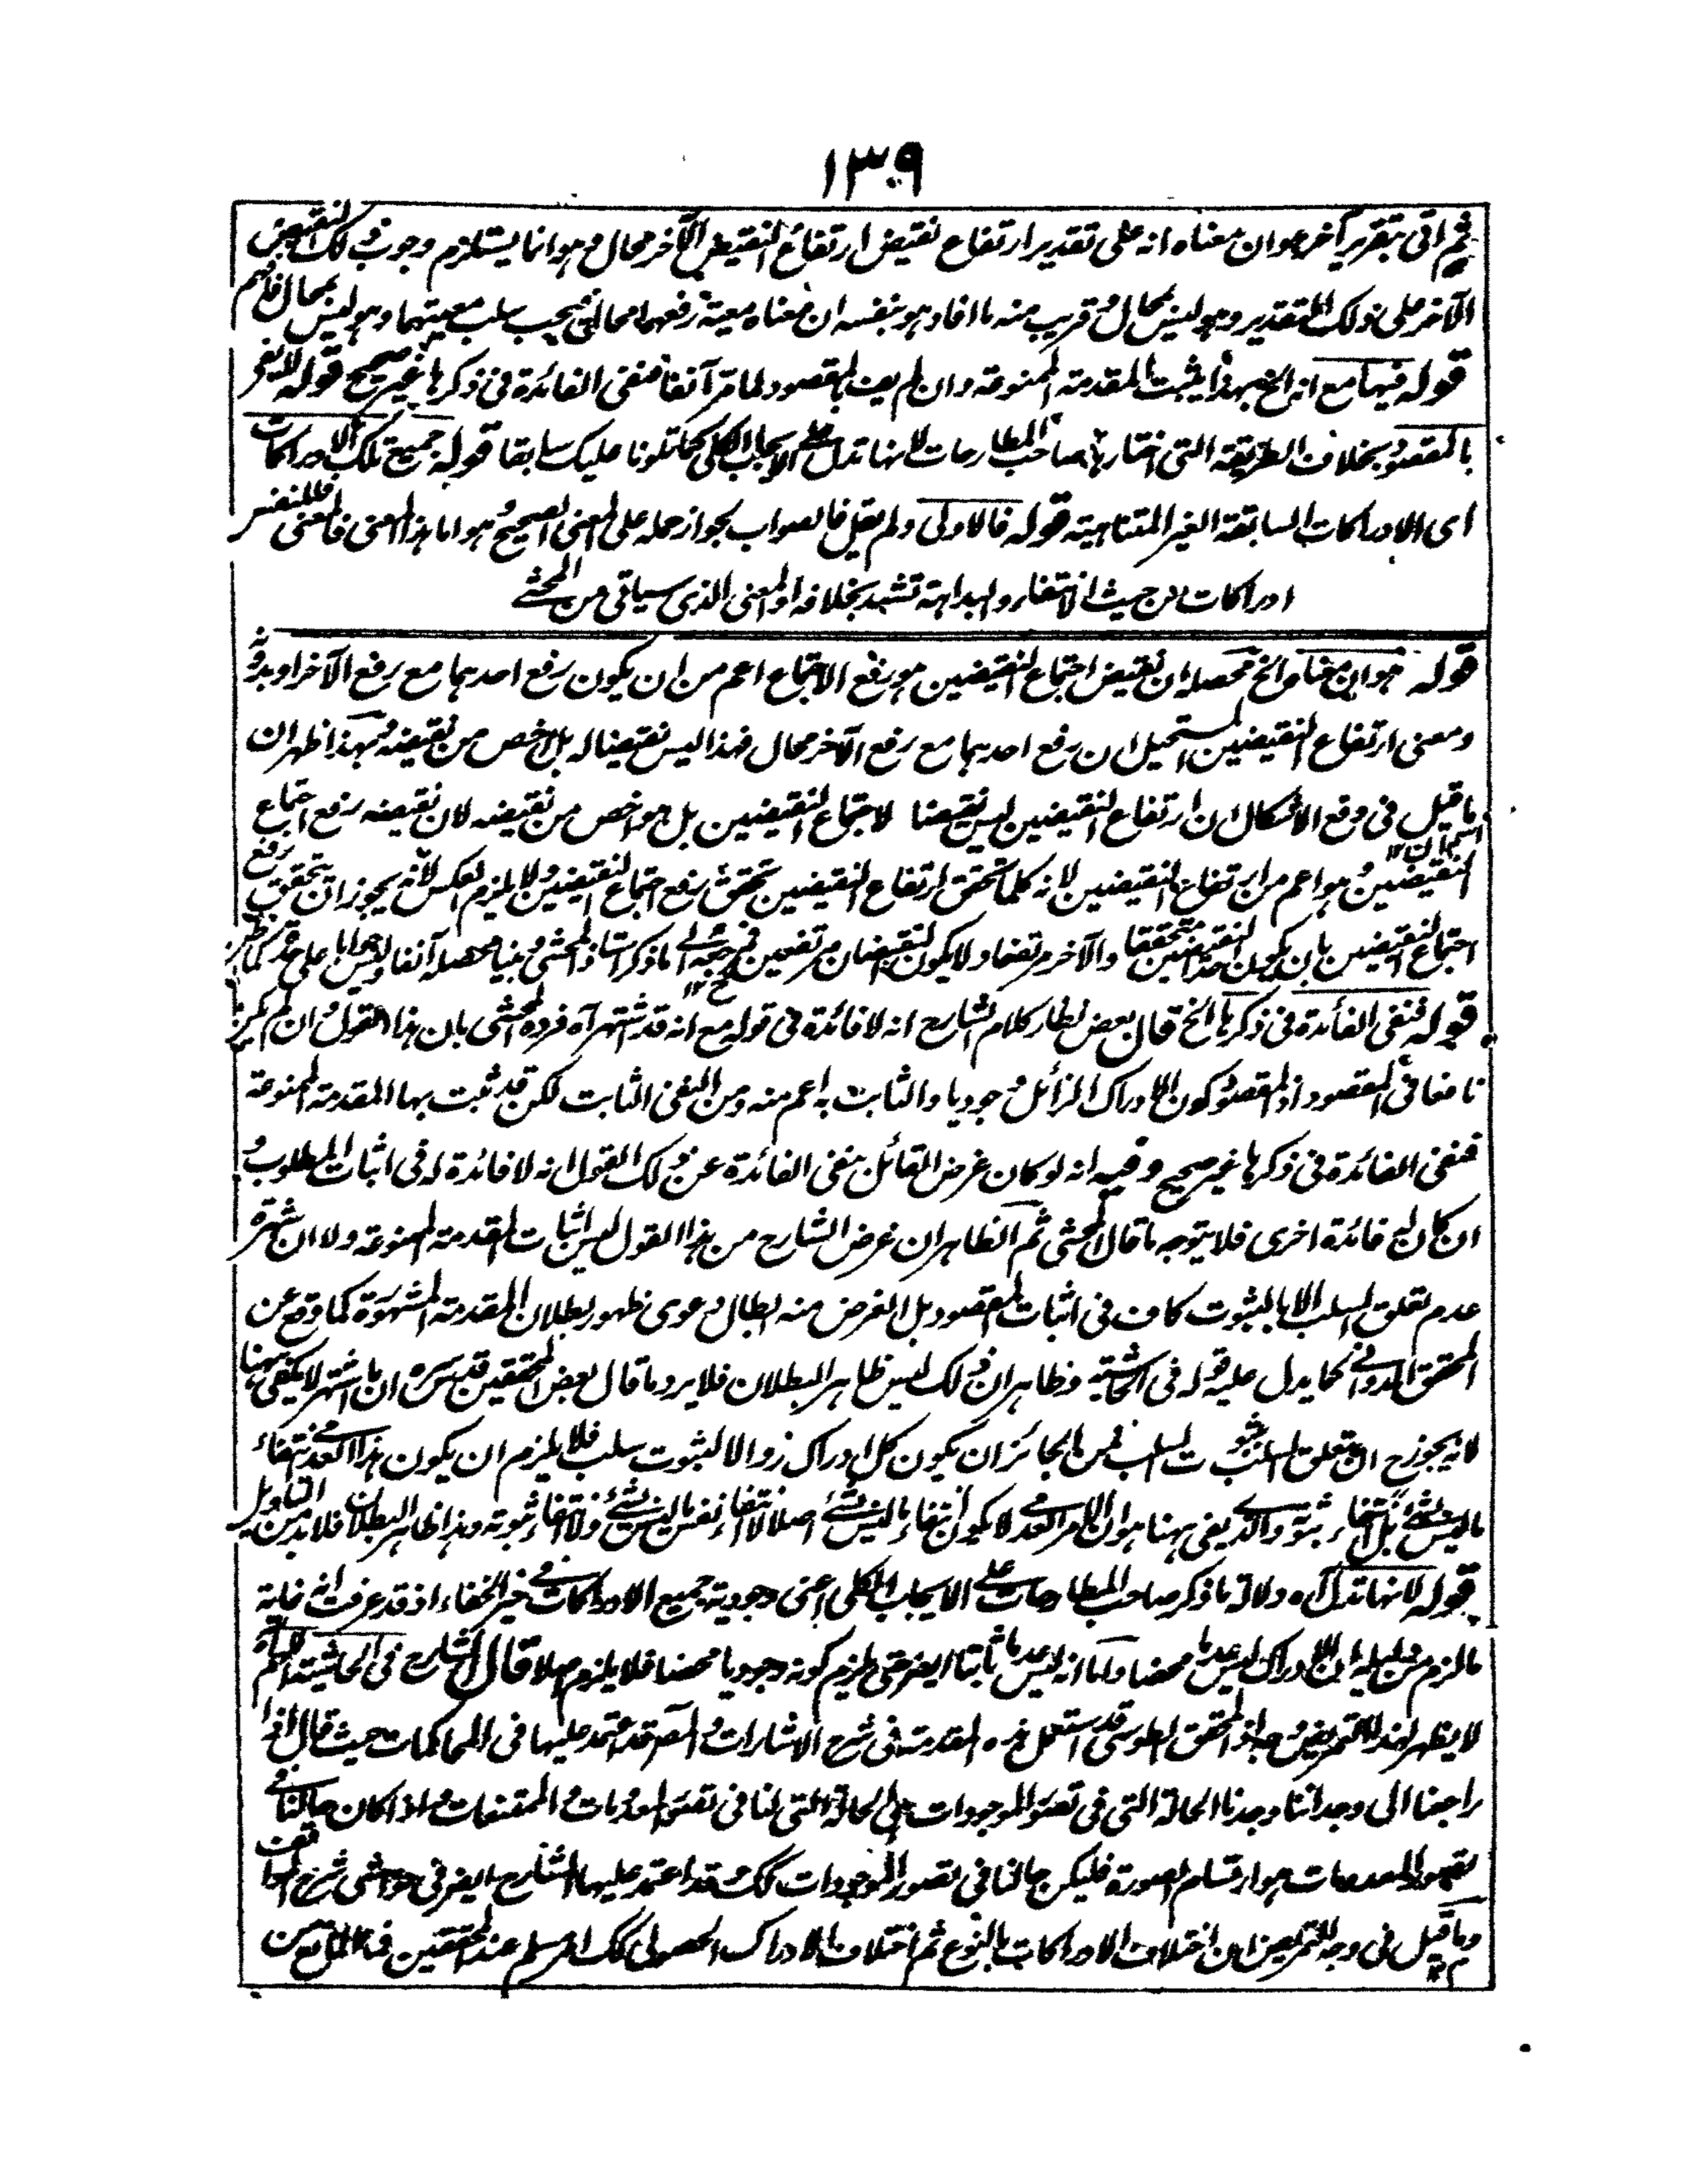 ١٣٩
ثم اتى بتقرير آخر هو ان معناه انه على تقدير ارتفاع نقيض ارتفاع النقيض الآخر محال وهو انما يستلزم وجوب ذلك النقيض
الآخر على ذلك التقدير وهو ليس بمحال وقريب منه ما افاد هو بنفسه ان معناه معية رفعهما محال فيجب سلب معيتهما وهو ليس بمحال فافهم
قوله فيها مع انه الخ بهذا يثبت المقدمة الممنوعة وان لم يفت بالمقصود لما مر آنفا فنفى الفائدة فى ذكرها غير صحيح قوله لا يغر
بالمقصود بخلاف الطريقة التى اختارها صاحب المطارحات لانها تدل على الايجاب الكلى كما تلونا عليك سابقا قوله جميع تلك الادراكات
اى الادراكات السابقة الغير المتناهية قوله فالاولى ولم يقل فالصواب لجواز حمله على المعنى الصحيح هو اما هذا المعنى فالمعنى فللنفس
ادراكات من حيث الانتفاء والبداهة تشهد بخلافه او المعنى الذى سياتى من المحشى
قوله هو ان معناه الخ محصله ان نقيض اجتماع النقيضين هو رفع الاجتماع اعم من ان يكون رفع احدهما مع رفع الآخر او بدونه
ومعنى ارتفاع النقيضين المستحيل ان رفع احدهما مع رفع الآخر محال فهذا ليس نقيضا له بل اخص من نقيضه وبهذا ظهر ان
ما قيل فى دفع الاشكال ان ارتفاع النقيضين ليس نقيضا لاجتماع النقيضين بل هو اخص من نقيضه لان نقيضه رفع اجتماع
النقيضين وهو اعم من ارتفاع النقيضين لانه كلما تحقق ارتفاع النقيضين تحقق رفع اجتماع النقيضين ولا يلزم العكس لانه يجوز ان تحقق رفع
اجتماع النقيضين بان يكون احد النقيضين متحققا والآخر مرتفعا ولا يكون النقيضان مرتفعين فمرجعه الى ما ذكر استاذ المحشى وبينا محصله آنفا وليس جوابا على حدة كما ظن
قوله فنفى الفائدة فى ذكرها الخ قال بعض نظار كلام الشارح انه لا فائدة فى قوله مع انه قد اشتهر آه فرده المحشى بان هذا القول وان لم يكن
نافعا فى المقصود اذ المقصود كون الادراك الزائل وجوديا والثابت به اعم منه ومن النفى الثابت لكن قد ثبت بها المقدمة الممنوعة
فنفى الفائدة فى ذكرها غير صحيح وفيه انه لو كان غرض القائل بنفى الفائدة عن ذلك القول انه لا فائدة له فى اثبات المطلوب و
ان كان له فائدة اخرى فلا يتوجه ما قال المحشى ثم الظاهر ان غرض الشارح من هذا القول ليس اثبات المقدمة الممنوعة ولا ان شهرة
عدم تعلق السلب الا بالثبوت كاف فى اثبات المقصود بل الغرض منه ابطال دعوى ظهور بطلان المقدمة المشهورة كما وقع عن
المحقق الدوانى كما يدل عليه قوله فى الحاشية وظاهر ان ذلك ليس ظاهر البطلان فلا يرد ما قال بعض المحققين قدس سره ان ما اشتهر لا يكفى ههنا
لانه يجوز ان يتعلق السلب بثبوت السلب فمن الجائز ان يكون كل ادراك زوالا لثبوت سلب فلا يلزم ان يكون هذا العدمى انتفاء
ما ليس بشئ بل انتفاء ثبوته والذى يعنى ههنا هو ان الامر العدمى لا يكون انتفاء ما ليس بشئ اصلا لا انتفاء نفس ما ليس بشئ ولا انتفاء ثبوته وهذا ظاهر البطلان فلا بد من التاويل
قوله لانها تدل آه دلالة ما ذكر صاحب المطارحات على الايجاب الكلى اعنى وجودية جميع الادراكات فى حيز الخفاء اذ قد عرفت ان غاية
ما لزم من دليله ان الادراك ليس عدما محضا واما انه ليس عدما ثابتا ايضا حتى يلزم كونه وجوديا محضا فلا يلزم اصلا قال الشارح فى الحاشية
لا يظهر لهذا التمريض وجه اذ المحقق الطوسى قد استعمل هذه المقدمة فى شرح الاشارات والمصر قد اعتمد عليها فى المحاكمات حيث قال اذا
راجعنا الى وجداننا وجدنا الحالة التى فى تصور الموجودات هى الحالة التى لنا فى تصور المعدومات والممتنعات واذا كان حالنا فى
تصور المعدومات هو ارتسام الصورة فليكن حالنا فى تصور الموجودات كك وقد اعتمد عليها الشارح ايضا فى حواشى شرح المواقف
وما قيل فى وجه التمريض ان اختلاف الادراكات بالنوع ثم اختلاف الادراك الحصولى كك امر مسلم عند المحققين فما المانع من